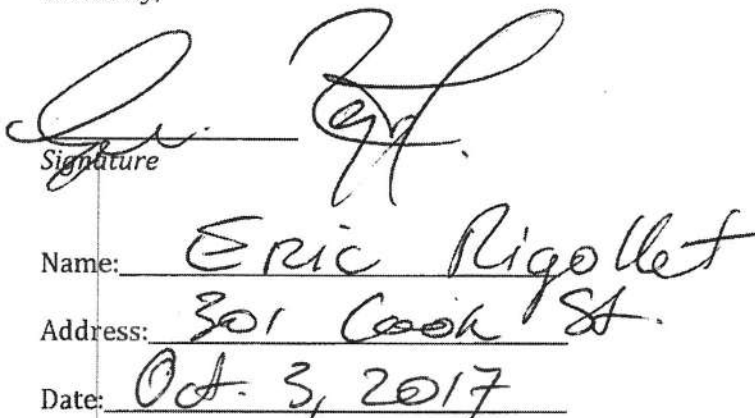 Signature
Name: Eric Rigollet
Address: 301 Cook St.
Date: Oct. 3, 2017